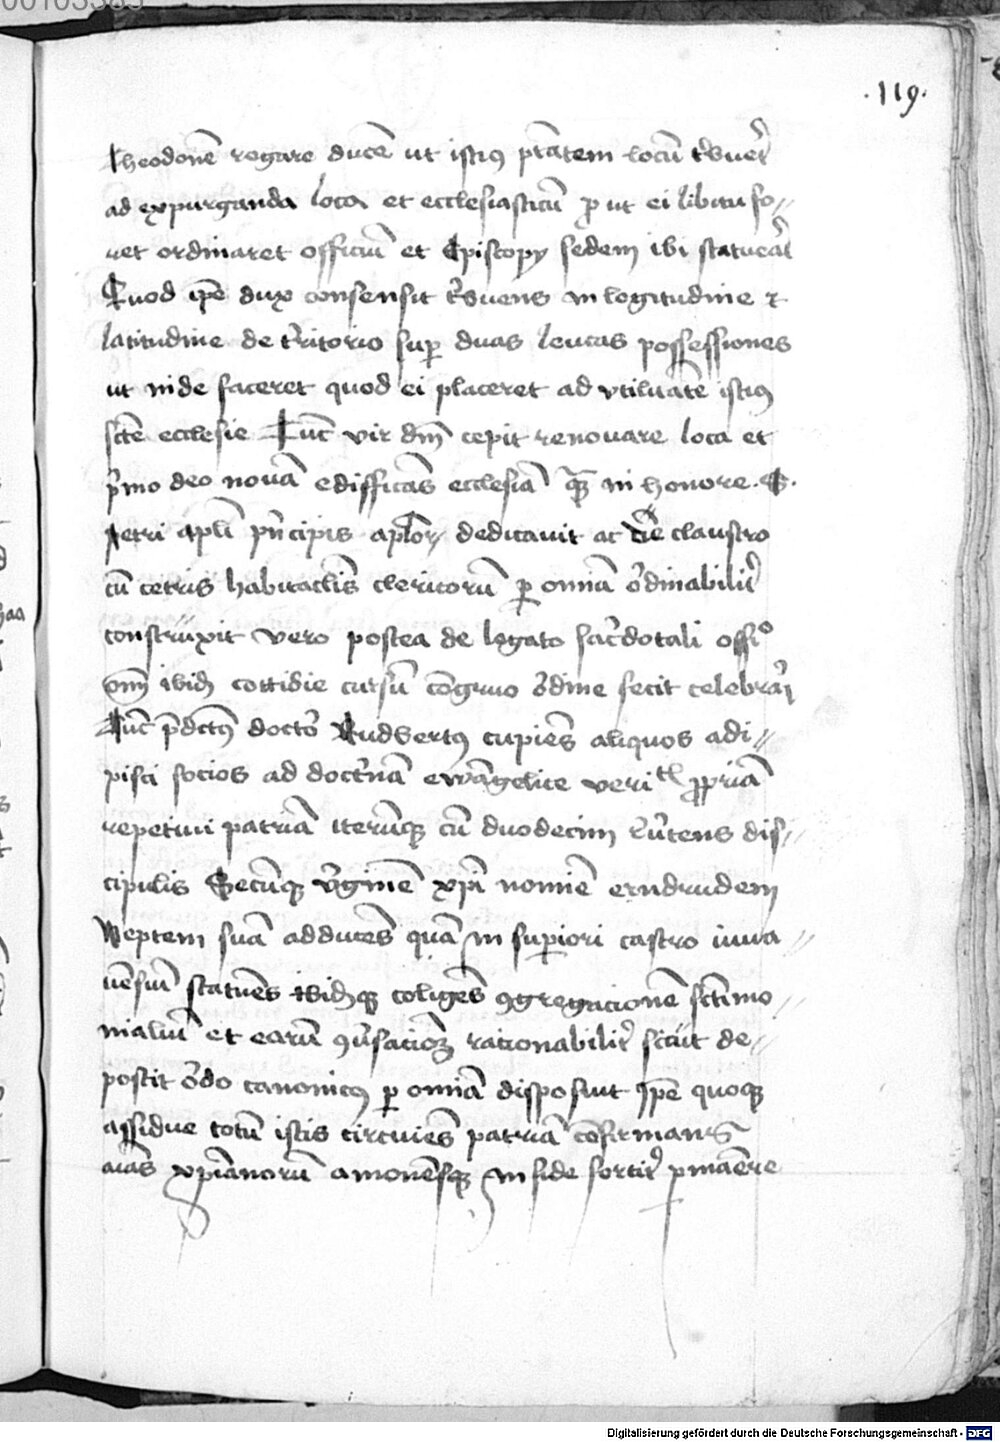 00103385
·119·
Theodonē rogare ducē ut istius ptātem locū t'bueř
ad expurganda loca et ecclesiasticū p ut ei libitu fo//
ret ordinaret officiū et Episcopy sedem ibi statueřt
Quod ip̄e dux consensit t'buens in lōgitudine ⁊
latitudine de t'ritorio sup duas leucas possessiones
ut inde faceret quod ei placeret ad vtilitatē istius
scē ecclesie Tūc vir dn̄i cepit renovare loca et
p'mo deo novā edifficās ecclesiā quā in honore · S ·
petri apl̄i p'ncipis aplōr dedicavit ac claustro
cū cetris habitaclis clericorū p omnia ordinabilit'
construxit vero postea de legato sac'dotali offi°
om̄ ibidē cottidie cursū cōgruo ordine fecit celebrari
Tūc p̄dictus doctor Rudbertus cupiēs aliquos adi//
pisci socios ad doct'nā ewāgelice veritat' p̱priā
repetiui patriā iterūq cū duodecim rev'tens dis//
cipulis Secūq v'ginē xp̄i nomīe erndrudem
Neptem suā adducēs quā in superiori castro iuua//
uēsiū statuēs ibidēq coligēs ꝯgregacionē sctimo//
nialiū et earū ꝯv'saciōʒ rationabilit' sicut de//
poscit ordo canonicus p omnia disposuit Ip̄e quoq
assidue totū istis circuiēs patriā cōfirmans
aīas xp̄ianorū amonēsq in fide fortit' pmanēre
Digitalisierung gefördert durch die Deutsche Forschungsgemeinschaft - DFG